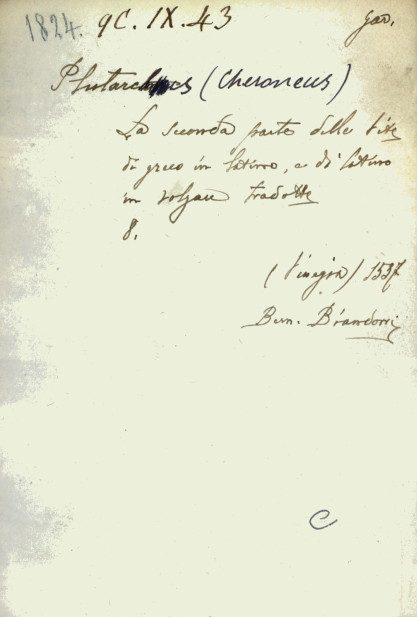 1824. 9C. IX. 43 gar.
Plutarchus (Cheroneus)
La seconda parte delle Vite
di greco in latino, e di latino
in volgare tradotte
8.
(Vinegia) 1537
Bern. Brandoni
C